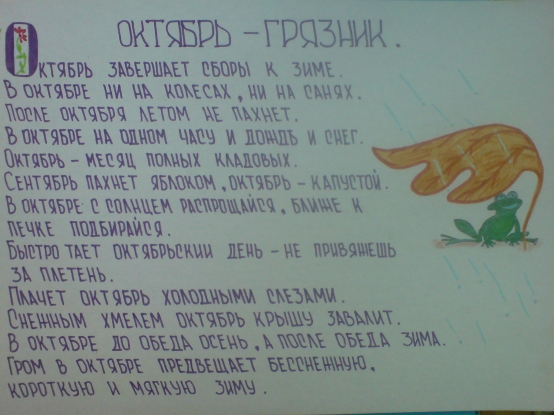 ОКТЯБРЬ – ГРЯЗНИК.
ОКТЯБРЬ ЗАВЕРШАЕТ СБОРЫ К ЗИМЕ.
В ОКТЯБРЕ НИ НА КОЛЕСАХ, НИ НА САНЯХ.
ПОСЛЕ ОКТЯБРЯ ЛЕТОМ НЕ ПАХНЕТ.
В ОКТЯБРЕ НА ОДНОМ ЧАСУ И ДОЖДЬ И СНЕГ.
ОКТЯБРЬ – МЕСЯЦ ПОЛНЫХ КЛАДОВЫХ.
СЕНТЯБРЬ ПАХНЕТ ЯБЛОКОМ, ОКТЯБРЬ – КАПУСТОЙ.
В ОКТЯБРЕ С СОЛНЦЕМ РАСПРОЩАЙСЯ, БЛИЖЕ К
ПЕЧКЕ ПОДБИРАЙСЯ.
БЫСТРО ТАЕТ ОКТЯБРЬСКИЙ ДЕНЬ – НЕ ПРИВЯЖЕШЬ
ЗА ПЛЕТЕНЬ.
ПЛАЧЕТ ОКТЯБРЬ ХОЛОДНЫМИ СЛЕЗАМИ.
СНЕЖНЫМ ХМЕЛЕМ ОКТЯБРЬ КРЫШУ ЗАВАЛИТ.
В ОКТЯБРЕ ДО ОБЕДА ОСЕНЬ, А ПОСЛЕ ОБЕДА ЗИМА.
ГРОМ В ОКТЯБРЕ ПРЕДВЕЩАЕТ БЕССНЕЖНУЮ,
КОРОТКУЮ И МЯГКУЮ ЗИМУ.